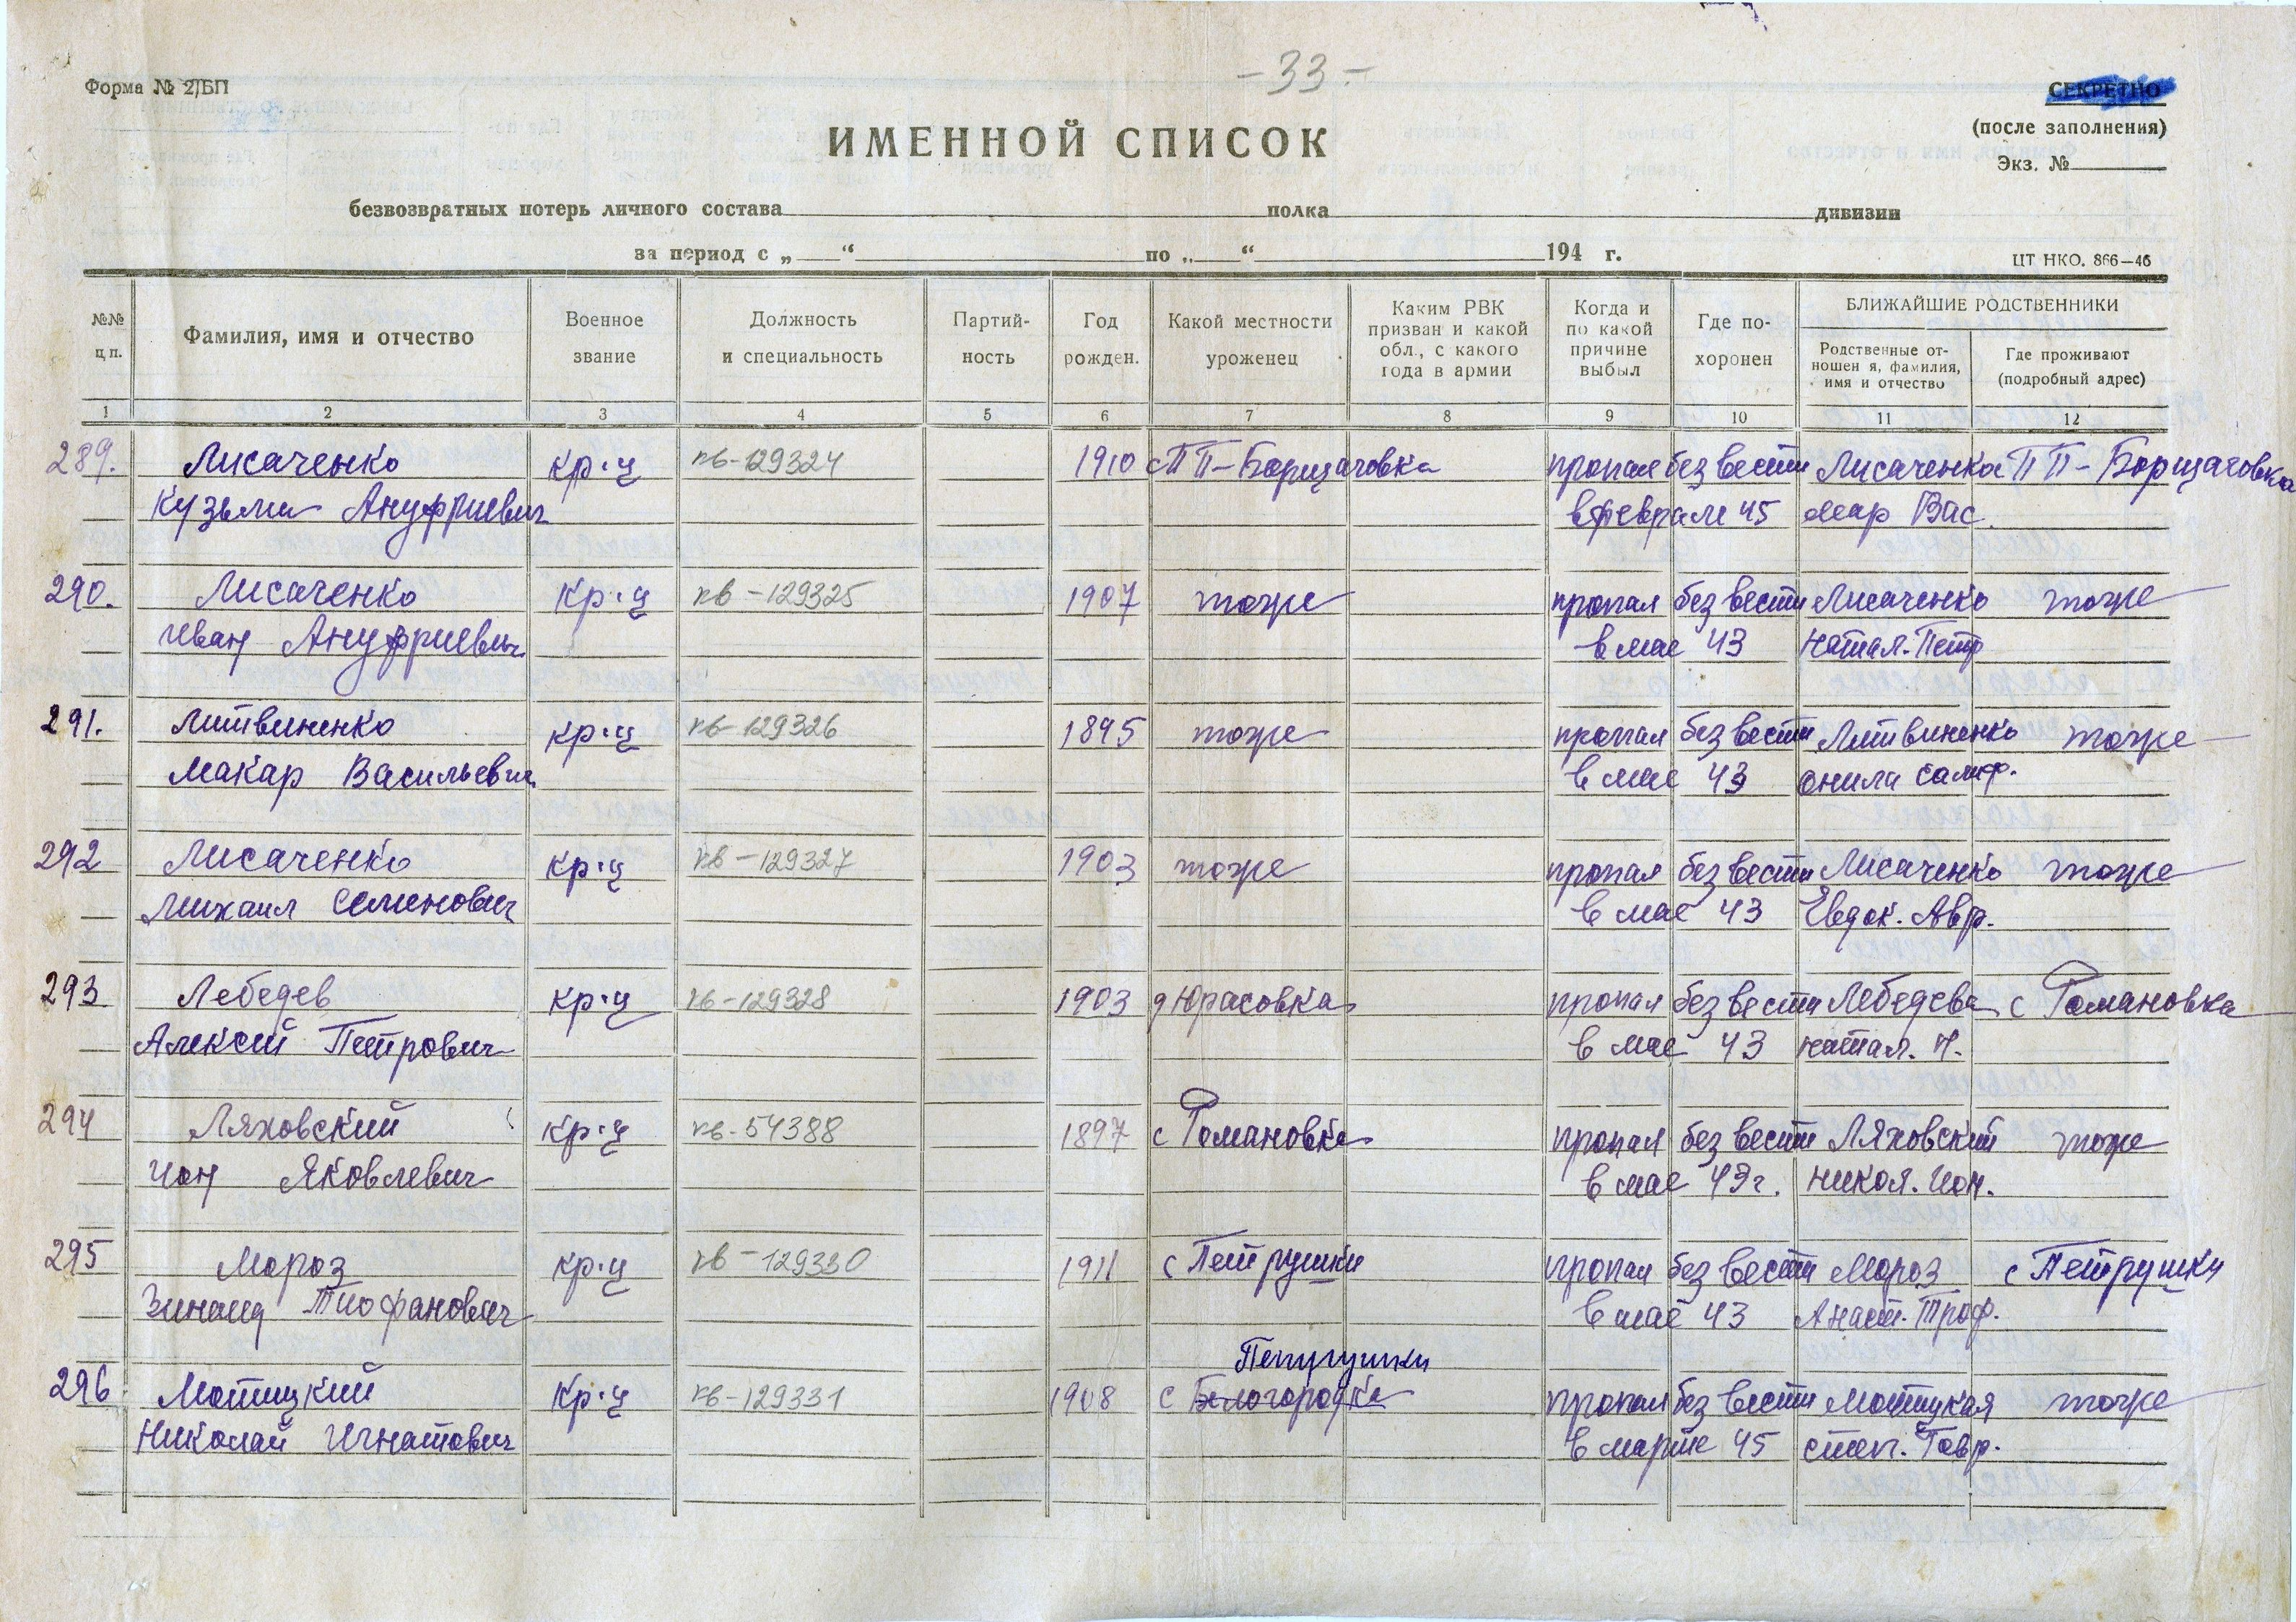 - 33 -
Форма № 2/БП
СЕКРЕТНО
(после заполнения)
Экз. №
ИМЕННОЙ СПИСОК
безвозвратных потерь личного состава полка дивизии
за период с „ “ по „ “ 194 г.
ЦТ НКО. 866—46
№№ п.п.
Фамилия, имя и отчество
Военное звание
Должность и специальность
Партий-ность
Год рожден.
Какой местности уроженец
Каким РВК призван и какой обл., с какого года в армии
Когда и по какой причине выбыл
Где по-хоронен
БЛИЖАЙШИЕ РОДСТВЕННИКИ
Родственные от-ношен я, фамилия, имя и отчество
Где проживают (подробный адрес)
1 2 3 4 5 6 7 8 9 10 11 12
289. Лисаченко кр-ц кв-129324 1910 с ПП-Борщаговка пропал без вести Лисаченко ПП-Борщаговка
Кузьма Ануфриевич в феврале 45 Мар Вас.
290. Лисаченко кр-ц кв-129325 1907 тоже пропал без вести Лисаченко тоже
Иван Ануфриевич в мае 43 Натал. Петр
291. Литвиненко кр-ц кв-129326 1895 тоже пропал без вести Литвиненко тоже
Макар Васильевич в мае 43
292 Лисаченко кр-ц кв-129327 1903 тоже пропал без вести Лисаченко тоже
Михаил Семенович в мае 43 Евдок. Авр.
293 Лебедев кр-ц кв-129328 1903 д Юрасовка пропал без вести Лебедева с Романовка
Алексей Петрович в мае 43 Натал. И.
294 Ляховский кр-ц кв-54388 1897 с Романовка пропал без вести Ляховский тоже
Ион Яковлевич в мае 43г. Никол. Ион.
295 Мороз кр-ц кв-129330 1911 с Петрушки пропал без вести Мороз с Петрушки
Зинаид Тиофанович в мае 43 Анаст. Троф.
Петрушки
296 Мотицкий кр-ц кв-129331 1908 с Белогородка пропал без вести Мотицкая тоже
Николай Игнатович в марте 45 Степ. Гавр.